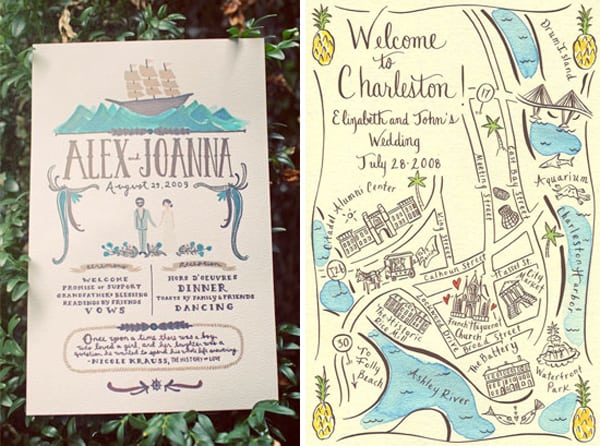 ALEX and JOANNA
August 29, 2009
ceremony
WELCOME
PROMISE OF SUPPORT
GRANDFATHERS BLESSING
READINGS BY FRIENDS
VOWS
reception
HORS D'OEUVRES
DINNER
TOASTS BY FAMILY & FRIENDS
DANCING
Once upon a time there was a boy
who loved a girl, and her laughter was a
question he wanted to spend his whole life answering.
-NICOLE KRAUSS, THE HISTORY OF LOVE
Welcome
to
Charleston!
Elizabeth and John's
Wedding
July 28-2008
Drum Island
17
Aquarium
Meeting Street
East Bay Street
Citadel Alumni Center
King Street
Charleston Harbor
526
Calhoun Street
Hassel St.
City
Market
Lockwood Drive
French Huguenot
Church
Broad Street
The Historic
Rice Mill
The Battery
30
To
Folly
Beach
Ashley River
Waterfront
Park